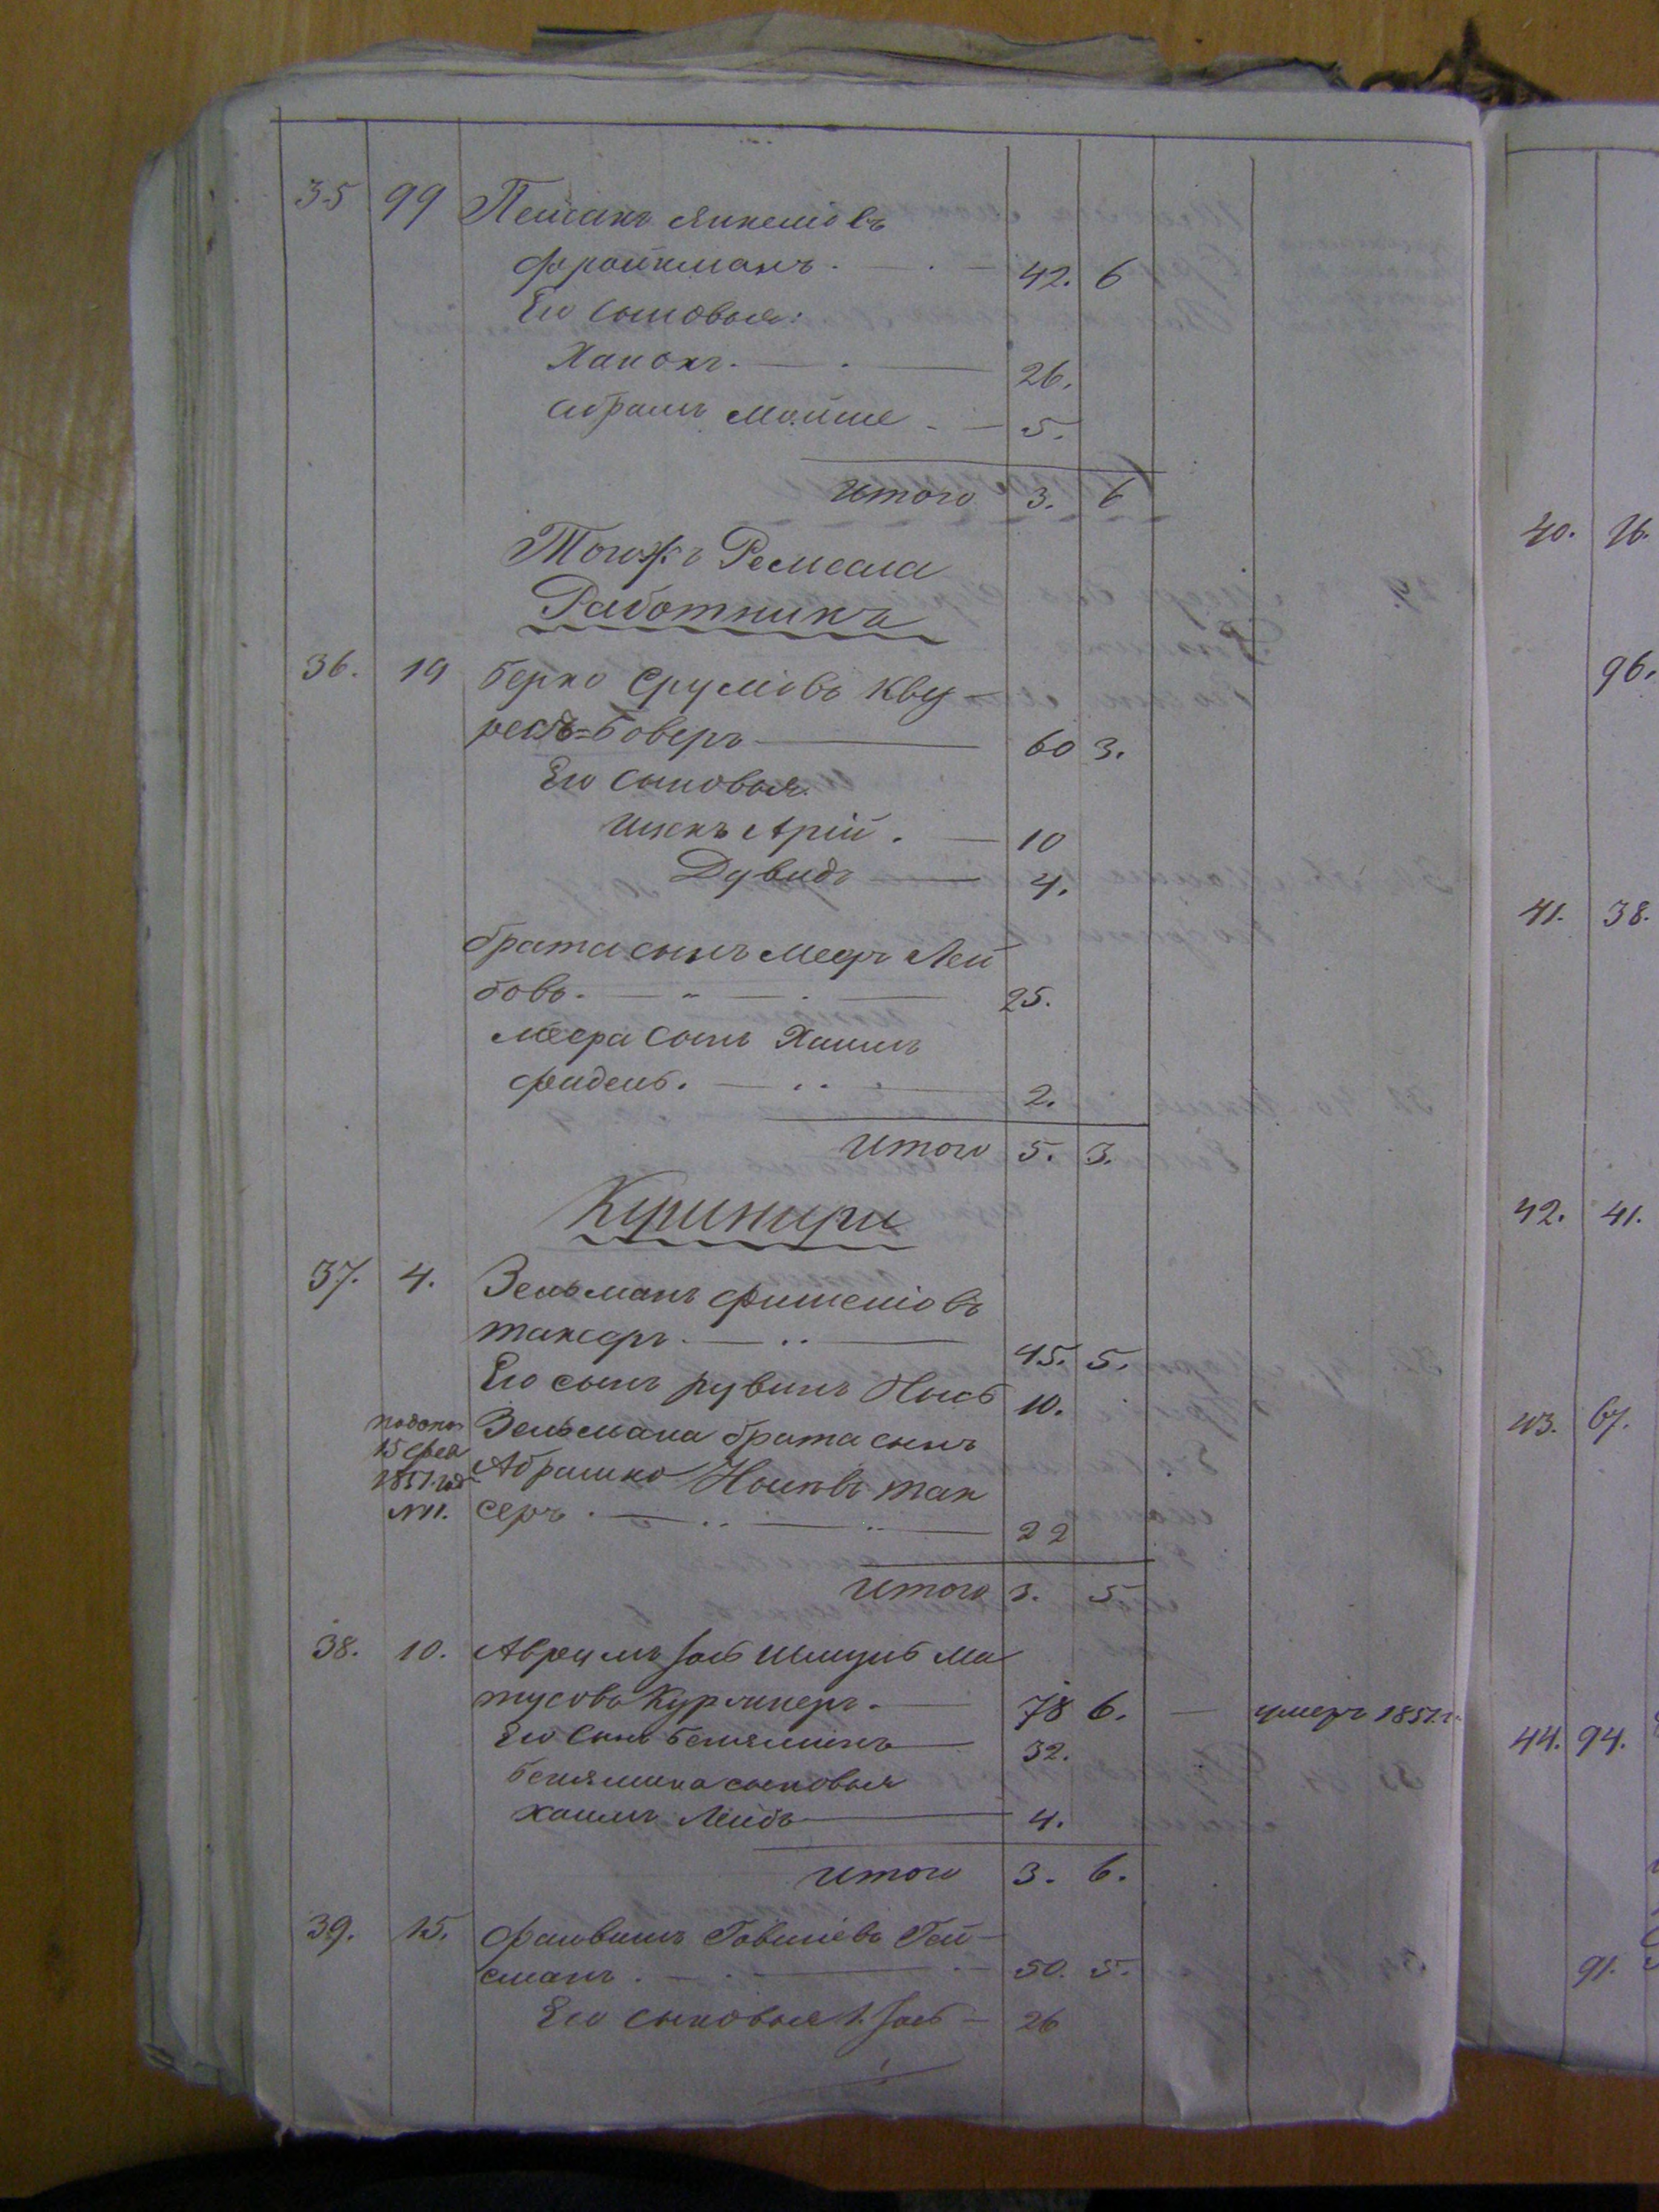 35 99 Пейсакъ Янкелювъ
Фройкманъ. 42. 6
Его сыновья:
Ханохъ. 26.
Абрамъ Мойше 5.
Итого 3. 6
Тогожъ Ремесла
Работникъ
36. 19 Берко Срулювъ Кву-
Боверъ 60 3.
Его сыновья
Ицекъ Арій. 10
Дувидъ 4.
брата сынъ Мееръ Лей
бовъ. 25.
Меера сынъ Хаимъ
Фидель. 2.
Итого 5. 3.
Кушниры
37. 4. Зельманъ Фишелювъ
Таксеръ. 45. 5.
Его сынъ Рувинъ 10.
Зельмана брата сынъ
15
1851 год
№ 11.
Абрамко Таксеръ. 22
Итого 3. 5
38. 10. Аврумъ Іось Шмуль Ма
тусовъ Курлянеръ. 78 6. умеръ 1851 г.
Его сынъ Беньяминъ 32.
Беньямина сыновья
Хаимъ Лейбъ 4.
Итого 3. 6.
39. 15. Файвишъ Говшіевъ Гей-
сманъ. 50. 5.
Его сыновья 1. Іось 26
40. 76.
96.
41. 38.
42. 41.
43. 67.
44. 94.
91.